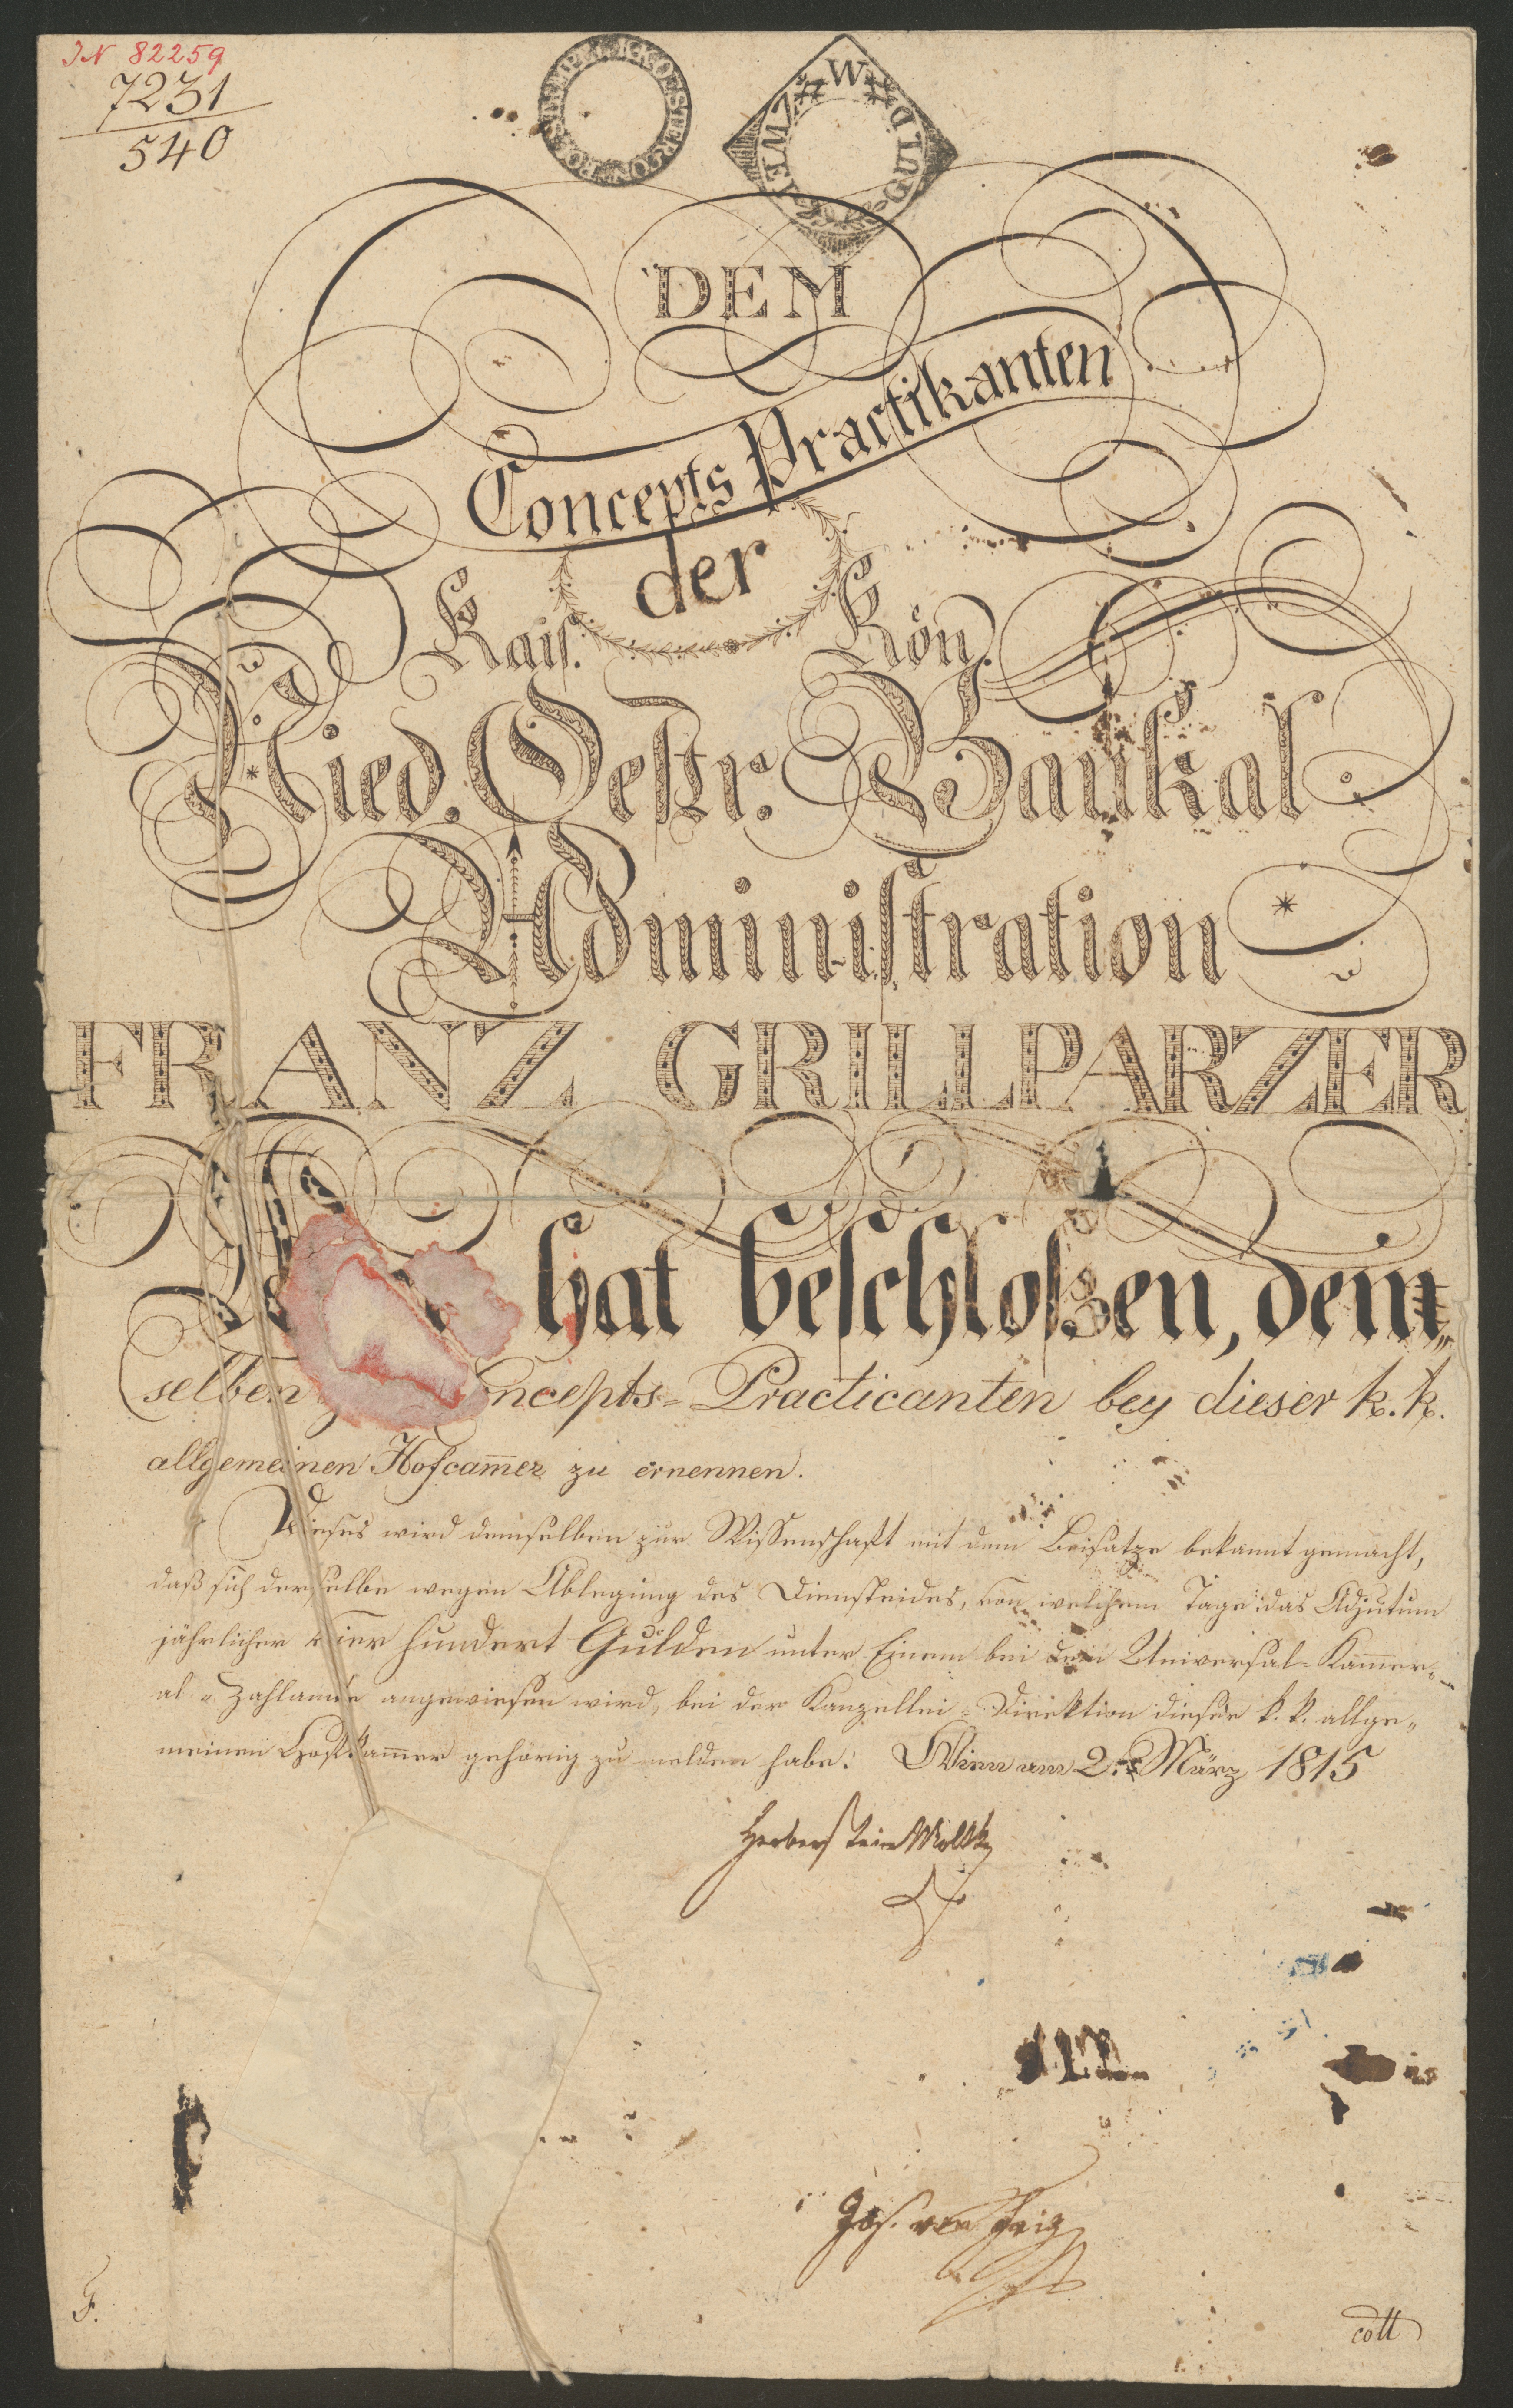 IN 82259
7231
540
POSSTEMPEL K K OESTER CON
ZWEI GULD W W
DEM
Concepts Practikanten
der
Kais. Kön.
Nied. Oestr. Bankal
Administration
FRANZ GRILLPARZER
hat beschloßen, dem„
selben ncepts-Practicanten bey dieser k. k.
allgemeinen Hofcam̅er zu ernennen.
Dieses wird demselben zur Wissenschaft mit dem Beisatze bekannt gemacht,
daß sich derselbe wegen Ablegung des Diensteides, von welchem Tage das Adjutum
jährlicher vier hundert Gulden unter Einem bei dem Universal-Kam̅er-
al-Zahlamte angewiesen wird, bei der Kanzellei-Direktion dieser k. k. allge„
meinen Hofkam̅er gehörig zu melden habe. Wien am 2t März 1815
Herberstein Moltke
Jos. von
F.
coll